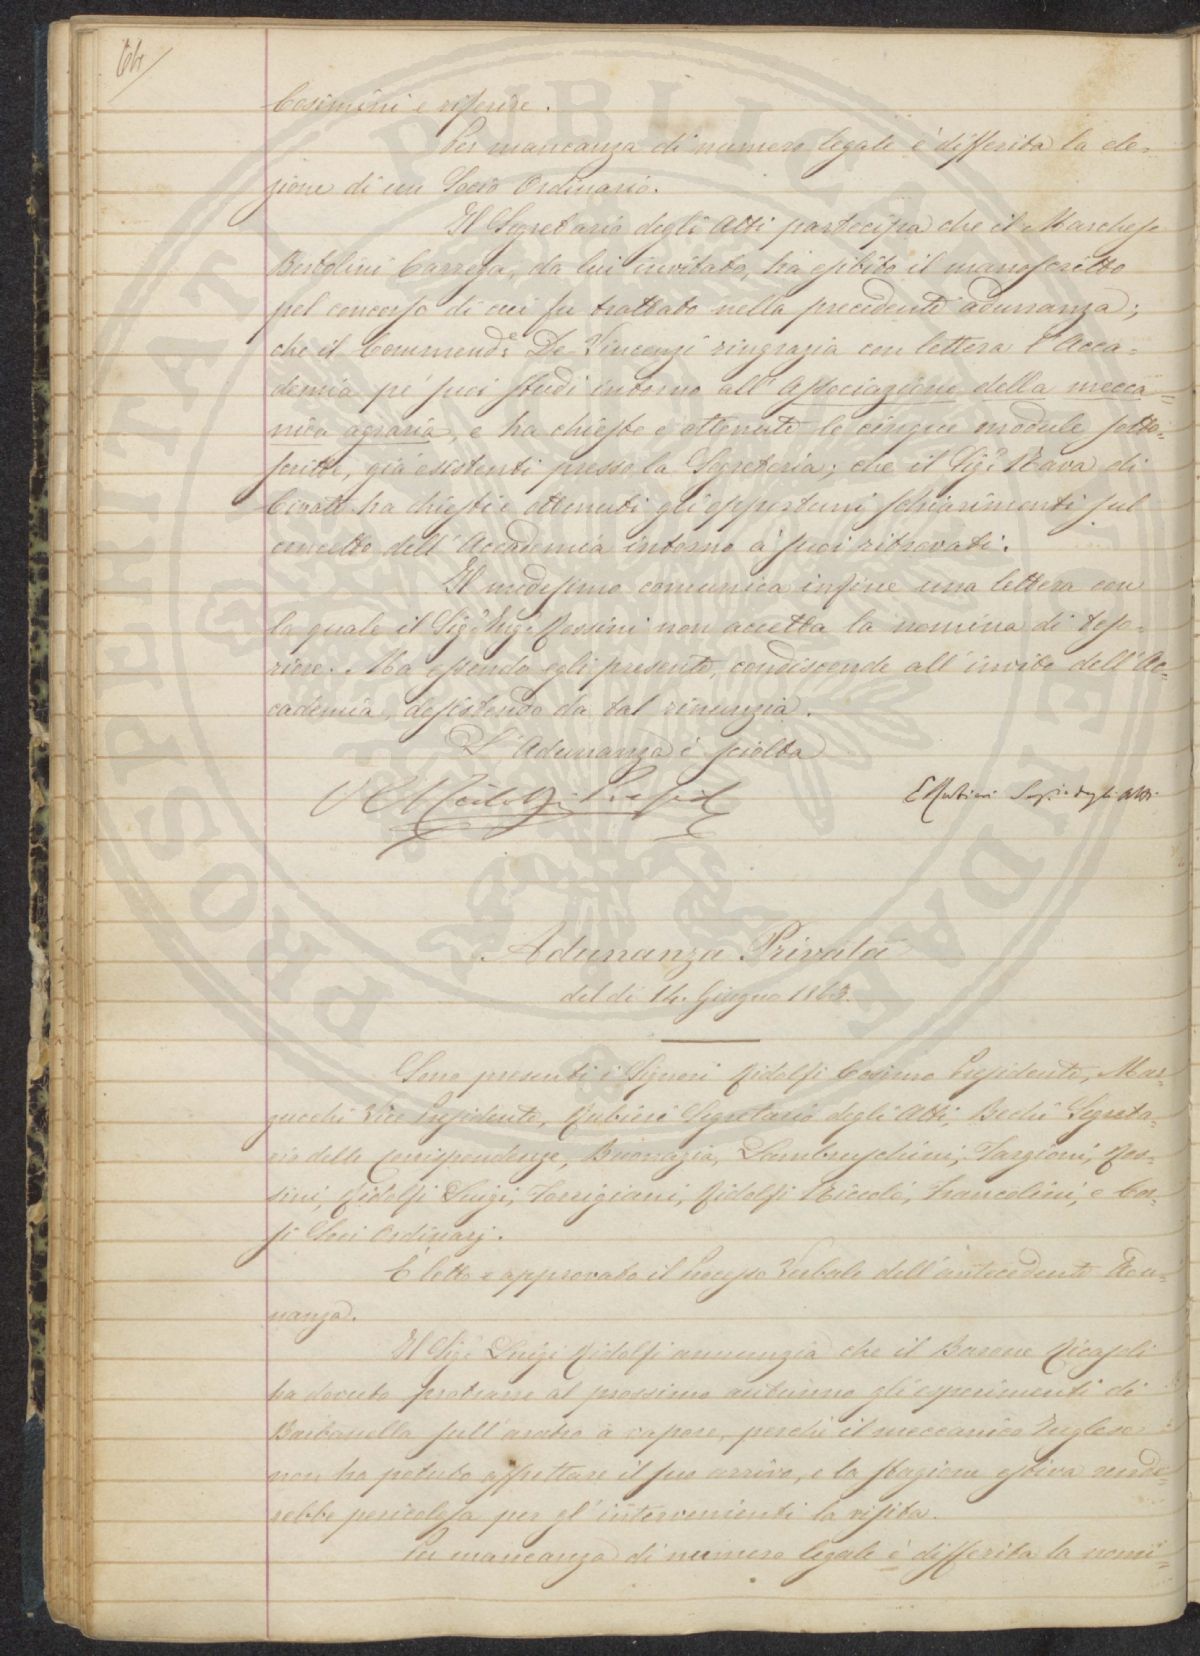 64
Cosimini e riferire.
Per mancanza di numero legale è differita la ele-
zione di un Socio Ordinario.
Il Segretario degli Atti partecipa che il Marchese
Bertolini Carrega, da lui invitato, ha esibito il manoscritto
pel concorso di cui fu trattato nella precedente adunanza;
che il Commendᵉ De-Vincenzi ringrazia con lettera l'Acca-
demia pe' suoi studi intorno all'Associazione della mecca=
nica agraria, e ha chieste e ottenute le cinque module sotto-
scritte, già esistenti presso la Segreteria; che il Sigʳ Rava di
ha chiesti e ottenuti gli opportuni schiarimenti sul
concetto dell'Accademia intorno a' suoi ritrovati.
Il medesimo comunica infine una lettera con
la quale il Sigʳ Rossini non accetta la nomina di teso-
riere. Ma essendo egli presente, condiscende all'invito dell'Ac-
cademia, desistendo da tal rinunzia.
L'Adunanza è sciolta
Ridolfi Presidᵉ
E Rubieri Segʳⁱᵒ degli Atti
Adunanza Privata
del dì 14. Giugno 1863.
Sono presenti i Signori Ridolfi Cosimo Presidente, Mar-
zucchi Vice Presidente, Rubieri Segretario degli Atti, Bechi Segreta-
rio delle Corrispondenze, Buonazia, Lambruschini, Targioni, Ros-
sini, Ridolfi Luigi, Torrigiani, Ridolfi Niccolò, Francolini, e Cor-
si Soci Ordinarj.
È letto e approvato il Processo Verbale dell'antecedente Adu-
nanza.
Il Sigʳ Luigi Ridolfi annunzia che il Barone Ricasoli
ha dovuto protrarre al prossimo autunno gli esperimenti di
Barbanella sull'aratro a vapore, perchè il meccanico Inglese
non ha potuto affrettare il suo arrivo, e la stagione estiva rende-
rebbe pericolosa per gl'intervenienti la visita.
Per mancanza di numero legale è differita la nomi=
PROSPERITATI PUBLICAE AUGENDAE